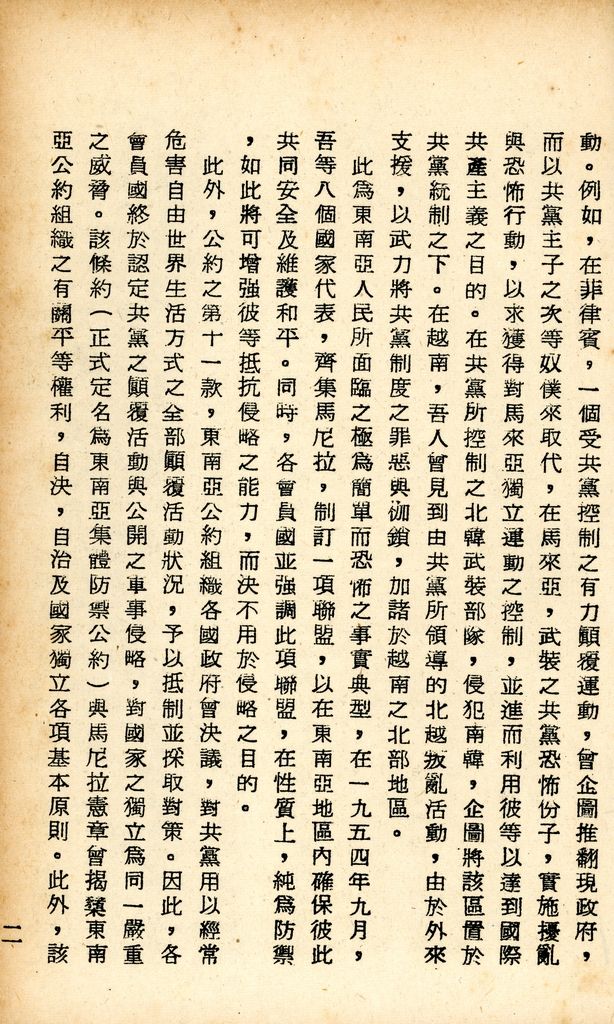 動。例如，在菲律賓，一個受共黨控制之有力顚覆運動，曾企圖推翻現政府，
而以共黨主子之次等奴僕來取代，在馬來亞，武裝之共黨恐怖份子，實施擾亂
與恐怖行動，以求獲得對馬來亞獨立運動之控制，並進而利用彼等以達到國際
共產主義之目的。在共黨所控制之北韓武裝部隊，侵犯南韓，企圖將該區置於
共黨統制之下。在越南，吾人曾見到由共黨所領導的北越叛亂活動，由於外來
支援，以武力將共黨制度之罪惡與伽鎖，加諸於越南之北部地區。
此為東南亞人民所面臨之極為簡單而恐怖之事實典型，在一九五四年九月，
吾等八個國家代表，齊集馬尼拉，制訂一項聯盟，以在東南亞地區內確保彼此
共同安全及維護和平。同時，各會員國並强調此項聯盟，在性質上，純為防禦
，如此將可增强彼等抵抗侵略之能力，而決不用於侵略之目的。
此外，公約之第十一款，東南亞公約組織各國政府曾決議，對共黨用以經常
危害自由世界生活方式之全部顚覆活動狀況，予以抵制並採取對策。因此，各
會員國終於認定共黨之顚覆活動與公開之軍事侵略，對國家之獨立為同一嚴重
之威脅。該條約（正式定名為東南亞集體防禦公約）與馬尼拉憲章曾揭櫫東南
亞公約組織之有關平等權利，自決，自治及國家獨立各項基本原則。此外，該
二